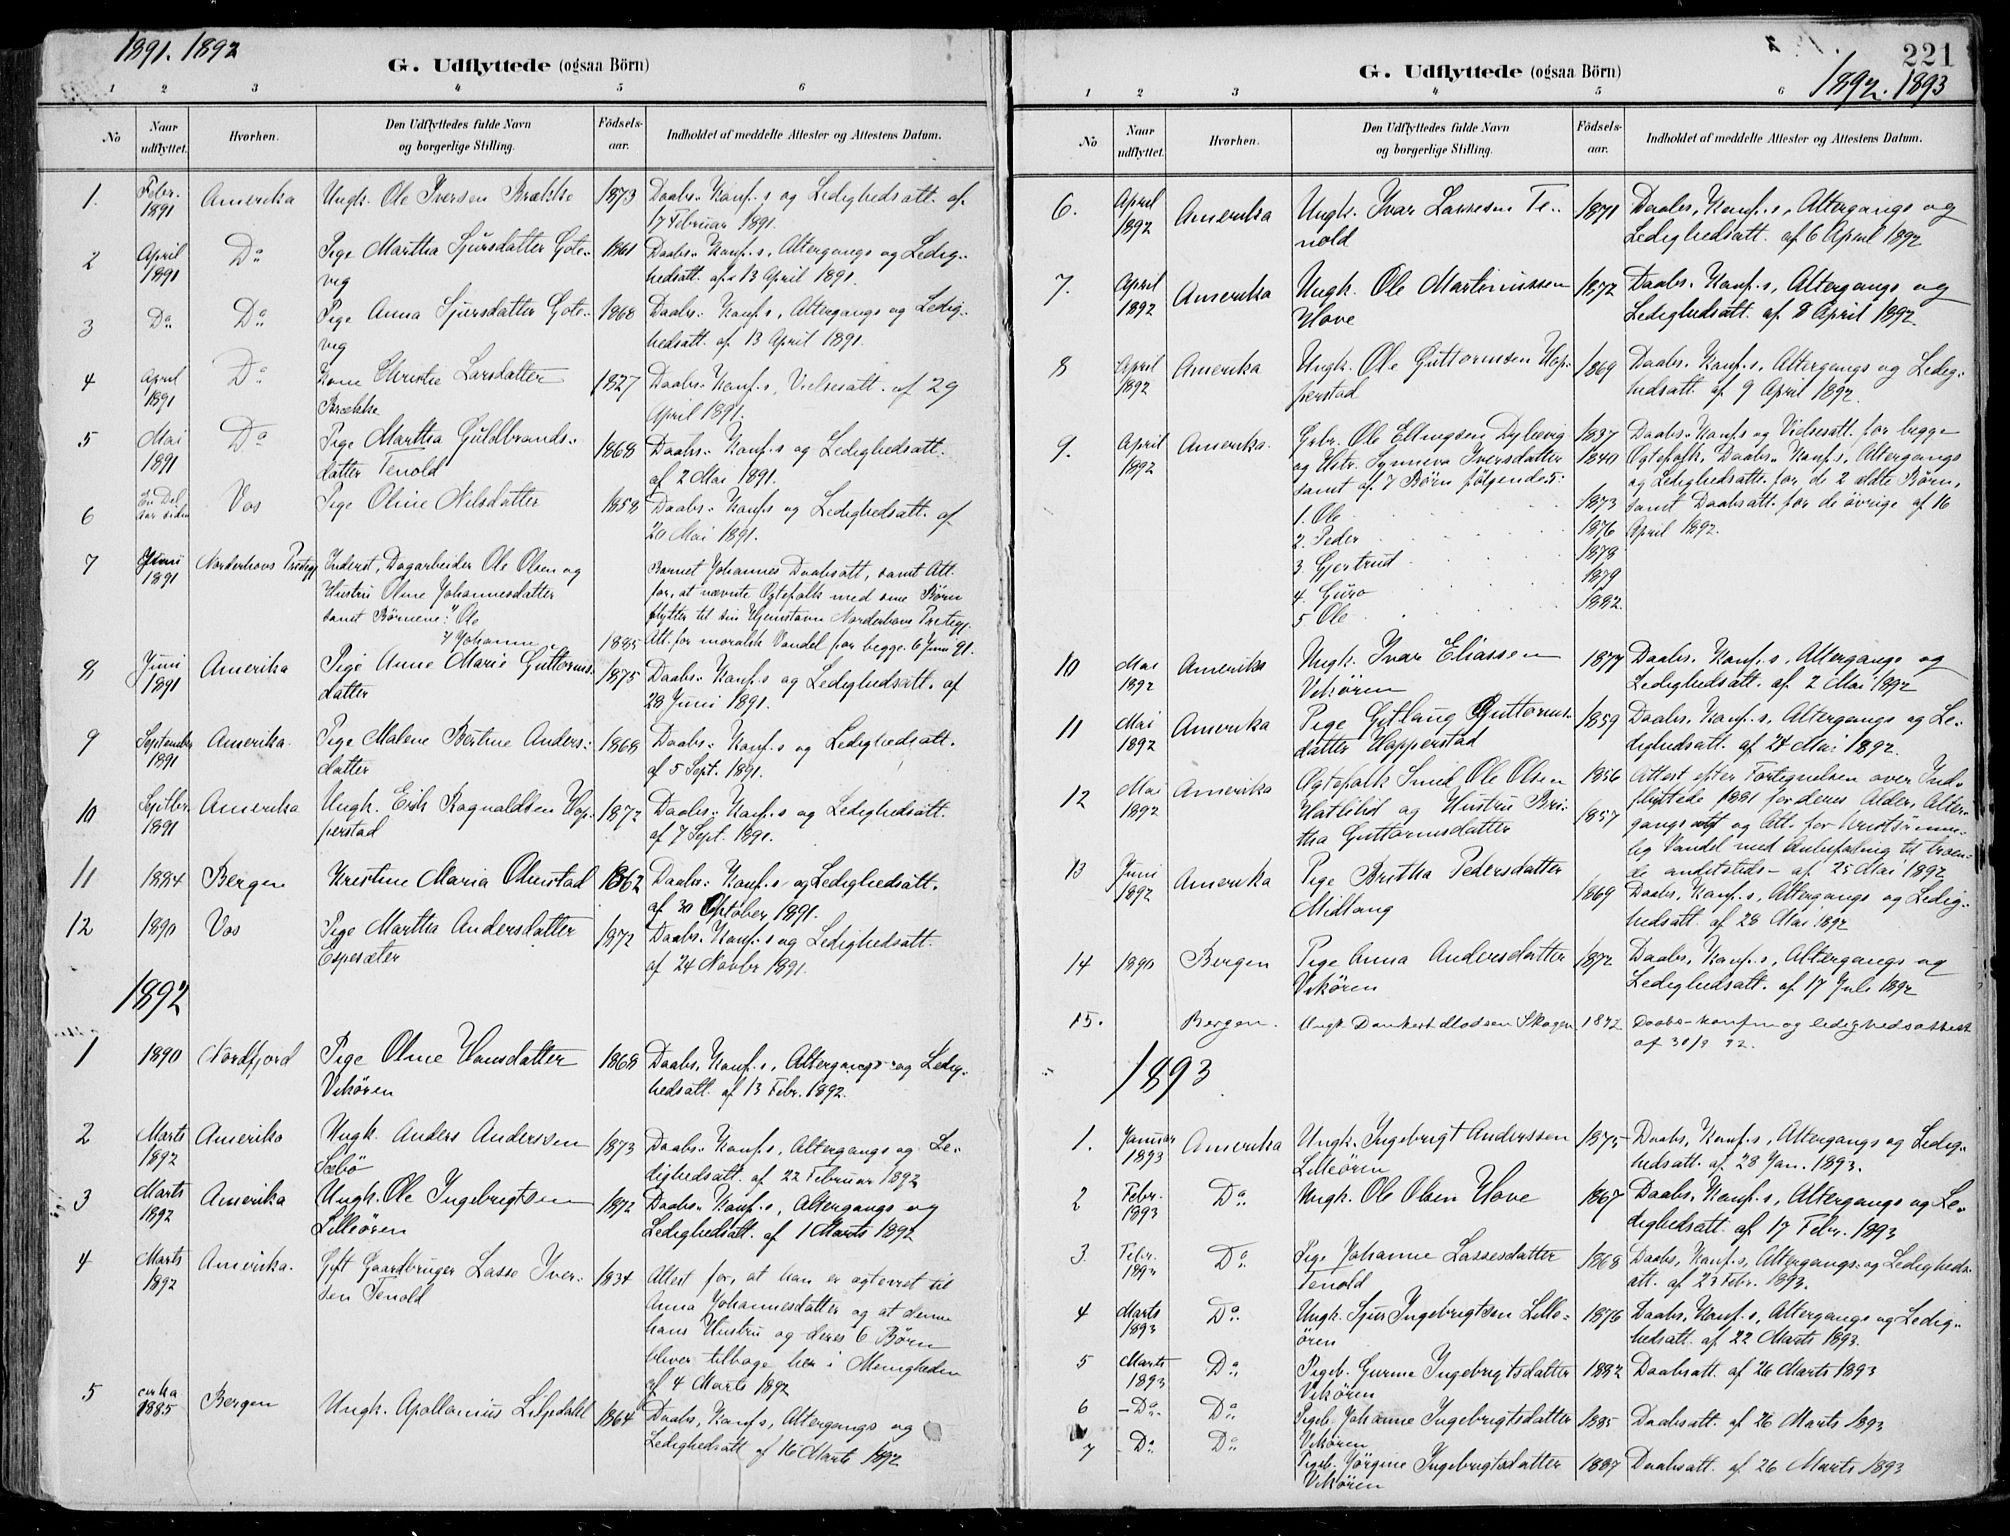 1891. 1892
G. Udflyttede (ogsaa Börn)
1 2 3 4 5 6
No
Naar udflyttet.
Hvorhen.
Den Udflyttedes fulde Navn og borgerlige Stilling.
Födsels-aar.
Indholdet af meddelte Attester og Attestens Datum.
1. Febr. 1891 Amerika Ungk. Ole Iversen Brække 1873 Daabs- Konf.s og Ledighedsatt. af
17 Februar 1891.
2 April 1891 Do Pige Martha Sjursdatter Gote- 1861 Daabs- Konf.s, Altergangs og Ledig-
veg hedsatt. af 13 April 1891.
3 Do Do Pige Anna Sjursdatter Gote- 1868 Daabs- Konf.s, Altergangs og Ledig-
veg hedsatt. af 13 April 1891.
4 April 1891 Do Kone Christie Larsdatter 1827 Daabs- Konf.s, Vielsesatt. af 29
Brække April 1891.
5 Mai 1891 Do Pige Martha Guldbrands- 1868 Daabs- Konf.s og Ledighedsatt.
datter Tenold af 2 Mai 1891.
6 En Del Aar siden Vos Pige Oline Nilsdatter 1858 Daabs- Konf.s og Ledighedsatt. af
20 Mai 1891.
7 Juni 1891 Norderhovs Prstegj. Inderst, Dagarbeider Ole Olsen og Barnet Johannes Daabsatt, samt Att.
Hustru Oline Johannesdatter for, at nævnte Ægtefolk med sine Börn
samt Börnene: 1) Ole flytter til sin Hjemstavn Norderhovs Prstegj.
2) Johannes 1885 Att. for moralsk Vandel for begge. 6 Juni 91.
8 Juni 1891 Amerika Pige Anne Marie Guttorms- 1875 Daabs- Konf.s og Ledighedsatt. af
datter 29 Juni 1891.
9 September 1891 Amerika. Pige Malene Bertine Anders- 1868 Daabs- Konf.s og Ledighedsatt.
datter af 5 Sept. 1891.
10 Septbr. 1891 Amerika Ungk. Erik Ragnaldsen Hop- 1872 Daabs- Konf.s og Ledighedsatt.
perstad af 7 Sept. 1891.
11 1884 Bergen Kristine Maria Olmstad 1862 Daabs- Konf.s og Ledighedsatt.
af 30 Oktober 1891.
12 1890 Vos Pige Martha Andersdatter 1872 Daabs- Konf.s og Ledighedsatt.
Espesæter af 24 Novbr 1891.
1892
1 1890 Nordfjord Pige Oline Hansdatter 1868 Daabs, Konf.s, Altergangs og Ledig-
Vikören hedsatt. af 13 Febr. 1892.
2 Marts 1892 Amerika Ungk. Anders Anderssen 1873 Daabs- Konf.s, Altergangs og Le-
Sæbö dighedsatt. af 22 Februar 1892
3 Marts 1892 Amerika Ungk. Ole Ingebrigtsen 1872 Daabs- Konf.s, Altergangs og
Lilleören Ledighedsatt. af 1 Marts 1892
4 Marts 1892 Amerika. Gift Gaardbruger Lasse Iver- 1834 Attest for, at han er ægteviet til
sen Tenold Anna Johannesdatter og at denne
hans Hustru og deres 6 Börn
bliver tilbage her i Menigheden
af 4 Marts 1892
5 cirka 1885 Bergen Ungk. Apollonius Liljedahl 1864 Daabs, Konf.s, Altergangs og
Ledighedsatt af 16 Marts 1892
221
1892. 1893
G. Udflyttede (ogsaa Börn)
1 2 3 4 5 6
No
Naar udflyttet.
Hvorhen.
Den Udflyttedes fulde Navn og borgerlige Stilling.
Födsels-aar.
Indholdet af meddelte Attester og Attestens Datum.
6. April 1892 Amerika Ungk. Ivar Lassesen Te- 1871 Daabs, Konf.s, Altergangs og
nold Ledighedsatt. af 6 April 1892
7. April 1892 Amerika Ungk. Ole Martinussen 1872 Daabs- Konf.s, Altergangs og
Hove Ledighedsatt. af 8 April 1892.
8 April 1892 Amerika Ungk. Ole Guttormsen Hop- 1869 Daabs- Konf.s, Altergangs og Ledig-
perstad hedsatt. af 9 April 1892.
9. April 1892 Amerika. Grbr. Ole Ellingsen Dybevig 1837 Daabs- Konf.s og Vielsesatt. for begge
og Hstr. Synneva Iversdatter 1840 Ægtefolk, Daabs- Konf.s, Altergangs
samt af 7 Börn følgende 5: og Ledighedsatt. for de 2 ældte Börn,
1. Ole 1873 samt Daabsatt. for de övrige af 16
2. Peder 1876 April 1892.
3 Gjertrud 1878
4. Guro 1879
5 Ole 1882.
10 Mai 1892 Amerika Ungk. Ivar Eliassen 1877 Daabs. Konf.s, Altergangs og
Vikören Ledighedsatt. af 2 Mai 1892
11 Mai 1892 Amerika Pige Gjtlaug Guttorms- 1859 Daabs, Konf.s, Altergangs og Le-
datter Hopperstad dighedsatt. af 24 Mai 1892.
12 Mai 1892 Amerika Ægtefolk Smed Ole Olsen 1856 Attest efter Fortegnelsen over Ind-
Hatlelid og Hustru Bri- 1857 flyttede 1881 for deres Alder, Alter-
tha Guttormsdatter gangs og Att. for kristsömme-
lig Vandel med Anbefaling til troen-
de andetsteds af 25 Mai 1892
13 Juni 1892 Amerika Pige Britha Pedersdatter 1869 Daabs, Konf.s, Altergangs og Ledig-
Midlang hedsatt. af 28 Mai 1892
14 1890 Bergen Pige Anna Andersdatter 1872 Daabs, Konf.s, Altergangs og
Vikören Ledighedsatt. af 17 Juli 1892
15. Bergen. Ungk. Dankert Madsen Skagen 1872 Daabs- konfm og ledighedsattest
af 30/9 92.
1893
1. Januar 1893 Amerika Ungk. Ingebrigt Anderssen 1875 Daabs, Konf.s, Altergangs og Ledig-
Lilleören hedsatt. af 28 Jan. 1893.
2 Febr. 1893 Do Ungk. Ole Olsen Hove 1867 Daabs, Konf.s, Altergangs og Le-
dighedsatt. af 17 Febr. 1893
3. Febr. 1893 Do Pige Johanne Lassesdatter 1868 Daabs, Konf.s, Altergangs og Ledigheds-
Tenold att. af 23 Febr. 1893.
4 Marts 1893 Do Ungk. Sjur Ingebrigtsen Lille- 1876 Daabs, Konf.s, Altergangs og Ledig-
ören hedsatt. af 22 Marts 1893.
5 Marts 1893 Do Pigeb. Gurine Ingebrigtsdatter 1882 Daabsatt. af 26 Marts 1893
Vikören
6 Do Do Pigeb. Johanne Ingebrigtsdatter 1885 Daabsatt. af 26 Marts 1893
Vikören
7 Do Do Pigeb. Jörgine Ingebrigtsdatter 1887 Daabsatt. af 26 Marts 1893
Vikören